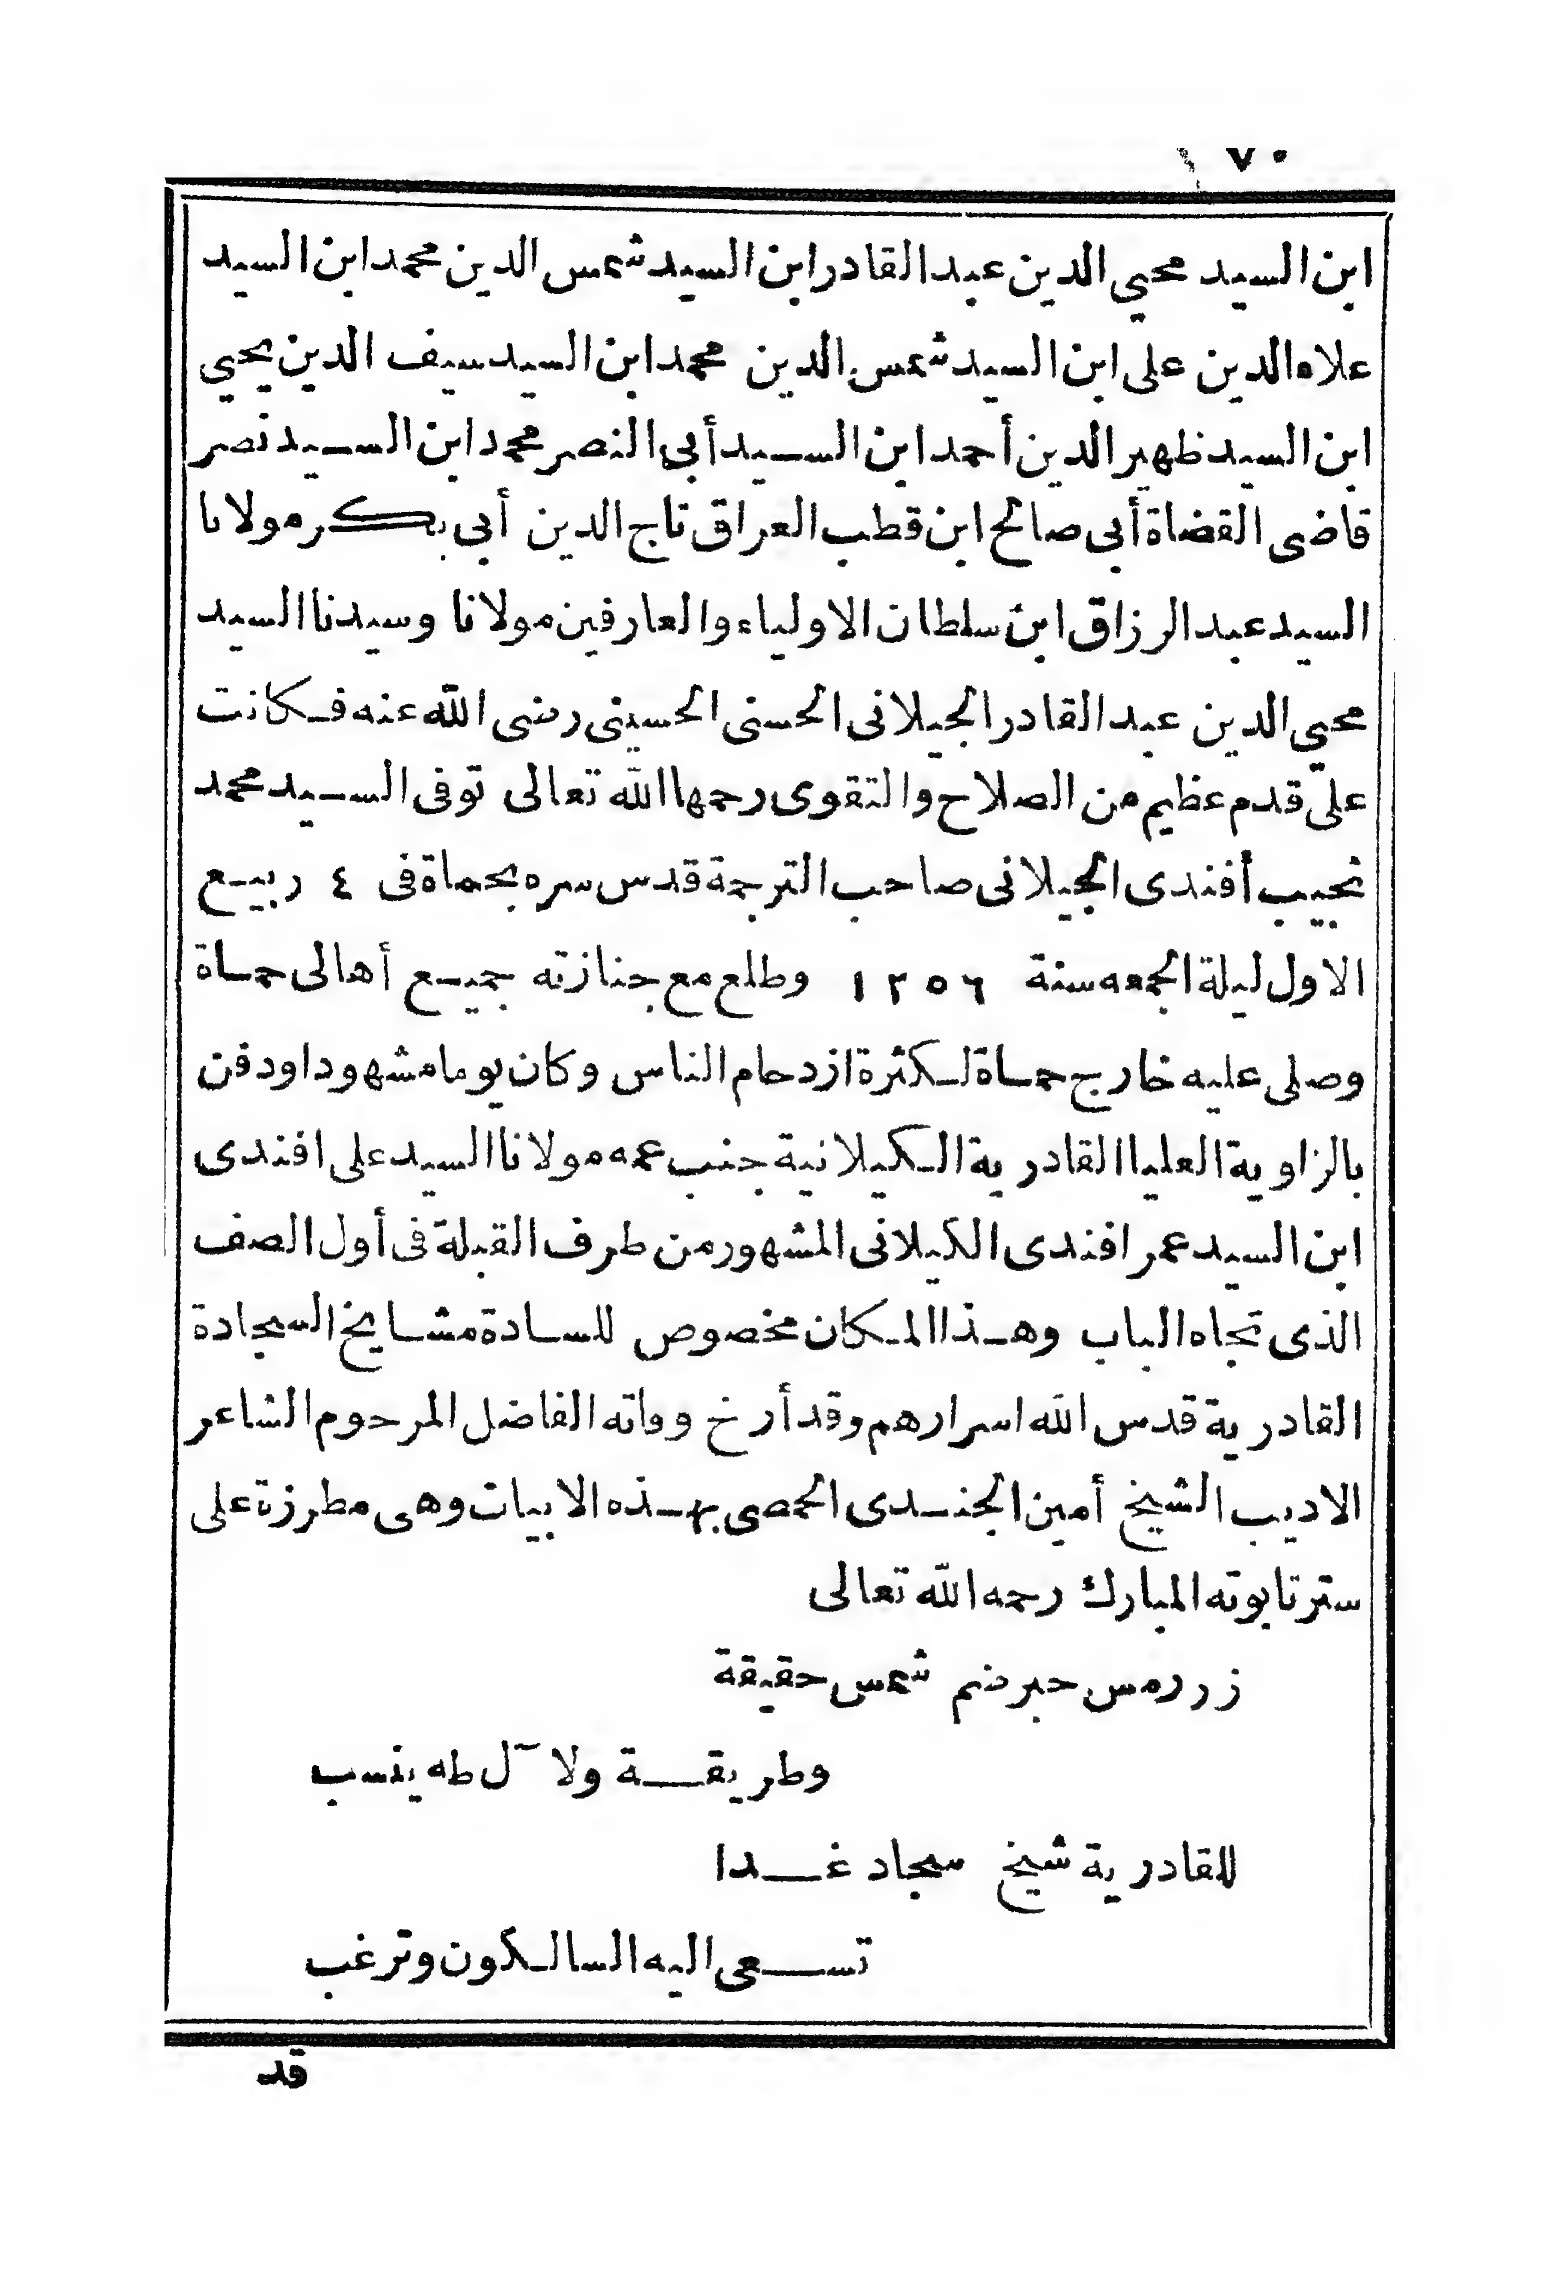 ٧٠
ابن السيد محيي الدين عبد القادر ابن السيد شمس الدين محمد ابن السيد
علاه الدين على ابن السيد شمس الدين محمد ابن السيد سيف الدين يحيي
ابن السيد ظهير الدين أحمد ابن السيد أبي النصر محمد ابن السيد نصر
قاضى القضاة أبى صالح ابن قطب العراق تاج الدين أبى بكر مولانا
السيد عبد الرزاق ابن سلطان الاولياء والعارفين مولانا وسيدنا السيد
محيي الدين عبد القادر الجيلانى الحسنى الحسينى رضى الله عنه فكانت
على قدم عظيم من الصلاح والتقوى رحمها الله تعالى توفى السيد محمد
نجيب أفندى الجيلانى صاحب الترجمة قدس سره بحماة فى ٤ ربيع
الاول ليلة الجمعه سنة ١٢٥٦ وطلع مع جنازته جميع أهالى حماة
وصلى عليه خارج حماة لكثرة ازدحام الناس وكان يوما مشهودا ودفن
بالزاوية العليا القادرية الكيلانية جنب عمه مولانا السيد على افندى
ابن السيد عمر افندى الكيلانى المشهور من طرف القبلة فى أول الصف
الذى تجاه الباب وهذا المكان مخصوص للسادة مشايخ السجادة
القادرية قدس الله اسرارهم وقد أرخ وواته الفاضل المرحوم الشاعر
الاديب الشيخ أمين الجندى الحمصى بهذه الابيات وهى مطرزة على
ستر تابوته المبارك رحمه الله تعالى
زر رمس حبر ضم شمس حقيقة
وطريقة ولآل طه ينسب
للقادرية شيخ سجاد غدا
تسعى اليه السالكون وترغب
قد